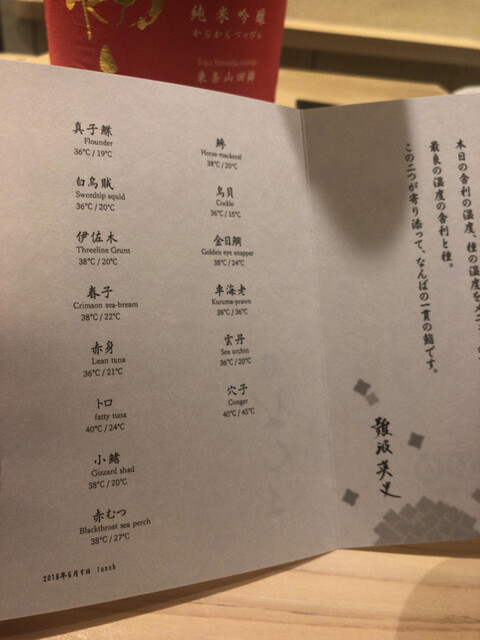 純米吟醸
からからべっぴん
東条山田錦
真子鰈
Flounder
36℃/19℃
白烏賊
Swordtip squid
36℃/20℃
伊佐木
Threeline Grunt
38℃/20℃
春子
Crimson sea-bream
38℃/22℃
赤身
Lean tuna
36℃/21℃
トロ
fatty tuna
40℃/24℃
小鰭
Gizzard shad
38℃/20℃
赤むつ
Blackthroat sea perch
38℃/27℃
鯵
Horse-mackerel
38℃/20℃
鳥貝
Cockle
36℃/15℃
金目鯛
Golden eye snapper
38℃/24℃
車海老
Kuruma-prawn
38℃/36℃
雲丹
Sea urchin
36℃/20℃
穴子
Conger
40℃/45℃
2018年6月9日 lunch
本日の舎利の温度、種の温度をメニ
最良の温度の舎利と種。
この二つが寄り添って、なんばの一貫の鮨です。
難波英史